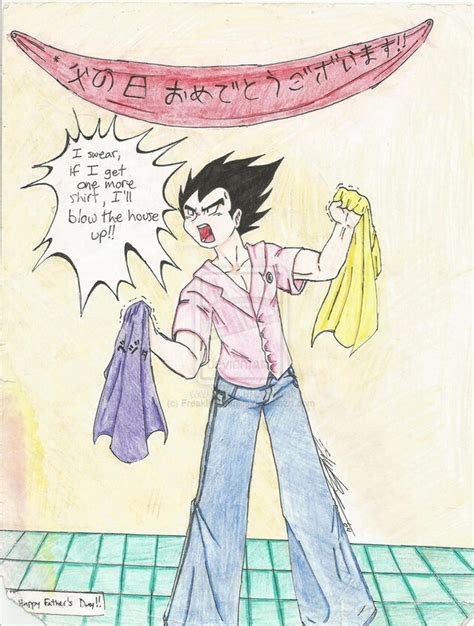 父の日 おめでとうございます!!
I swear,
if I get
one more
shirt, I'll
blow the house
up!!
Happy Father's Day!!